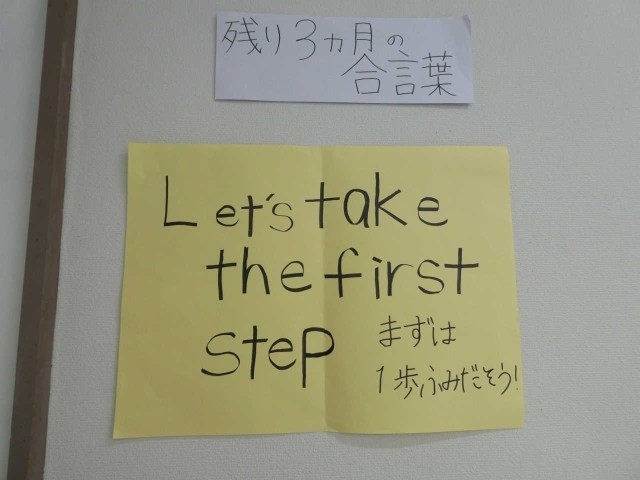 残り3ヵ月の
合言葉
Let's take
the first
step
まずは
1歩ふみだそう!